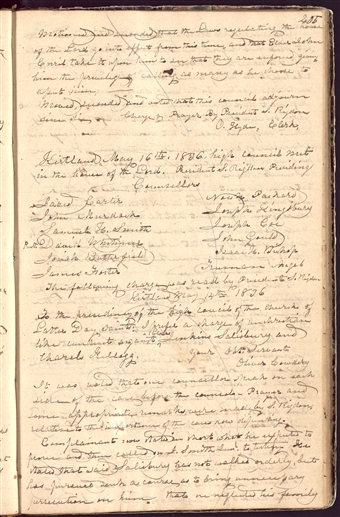 205
Motioned and seconded that the Laws regulating the house
of the Lord go into effect from this time, and that Elder John
Corril take it upon him to see that they are enforced giving
him the privilege of calling as many as he chose to
assist him.
Moved seconded and voted that this council adjourn
sine die. Closed by Prayer By President S. Rigdon
O. Hyde, Clerk
Kirtland May 16th, 1836. high council met
in the House of the Lord. President S. Rigdon Presiding
Counsellors
Jared Carter
John Murdock
Samuel H. Smith
Whitmer
Josiah Butterfield
James Foster
Noah Packard
Joseph Kingsbury
Joseph Coe
John Gould
Isaac H. Bishop
Truman
The following charge was read by President S. Rigdon
Kirtland May 1836
To the presidency of the high council of the church of
Latter Day Saints. I prefer a charge of unchristian
like conduct against Wilkins Salisbury and
Charles Kellogg. your Obt. Servant
Oliver Cowdery
It was voted that one counsellor speak on each
side of the case before the council. Prayer and
some appropriate remarks were made by S. Rigdon
relative to the of the case now
Complainant stated in short what he expected to
prove and then called on to testify. He
states that said Salisbury has not walked orderly, but
has pursued such a course as to bring unnecessary
persecution on him. thats on neglected his family